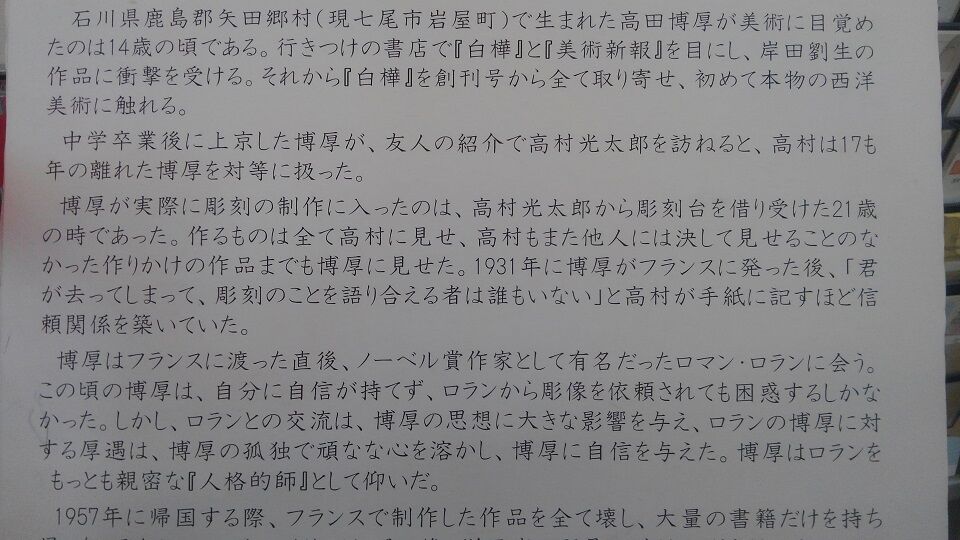 石川県鹿島郡矢田郷村(現七尾市岩屋町)で生まれた高田博厚が美術に目覚め
たのは14歳の頃である。行きつけの書店で『白樺』と『美術新報』を目にし、岸田劉生の
作品に衝撃を受ける。それから『白樺』を創刊号から全て取り寄せ、初めて本物の西洋
美術に触れる。
中学卒業後に上京した博厚が、友人の紹介で高村光太郎を訪ねると、高村は17も
年の離れた博厚を対等に扱った。
博厚が実際に彫刻の制作に入ったのは、高村光太郎から彫刻台を借り受けた21歳
の時であった。作るものは全て高村に見せ、高村もまた他人には決して見せることのな
かった作りかけの作品までも博厚に見せた。1931年に博厚がフランスに発った後、「君
が去ってしまって、彫刻のことを語り合える者は誰もいない」と高村が手紙に記すほど信
頼関係を築いていた。
博厚はフランスに渡った直後、ノーベル賞作家として有名だったロマン・ロランに会う。
この頃の博厚は、自分に自信が持てず、ロランから彫像を依頼されても困惑するしかな
かった。しかし、ロランとの交流は、博厚の思想に大きな影響を与え、ロランの博厚に対
する厚遇は、博厚の孤独で頑なな心を溶かし、博厚に自信を与えた。博厚はロランを
もっとも親密な『人格的師』として仰いだ。
1957年に帰国する際、フランスで制作した作品を全て壊し、大量の書籍だけを持ち